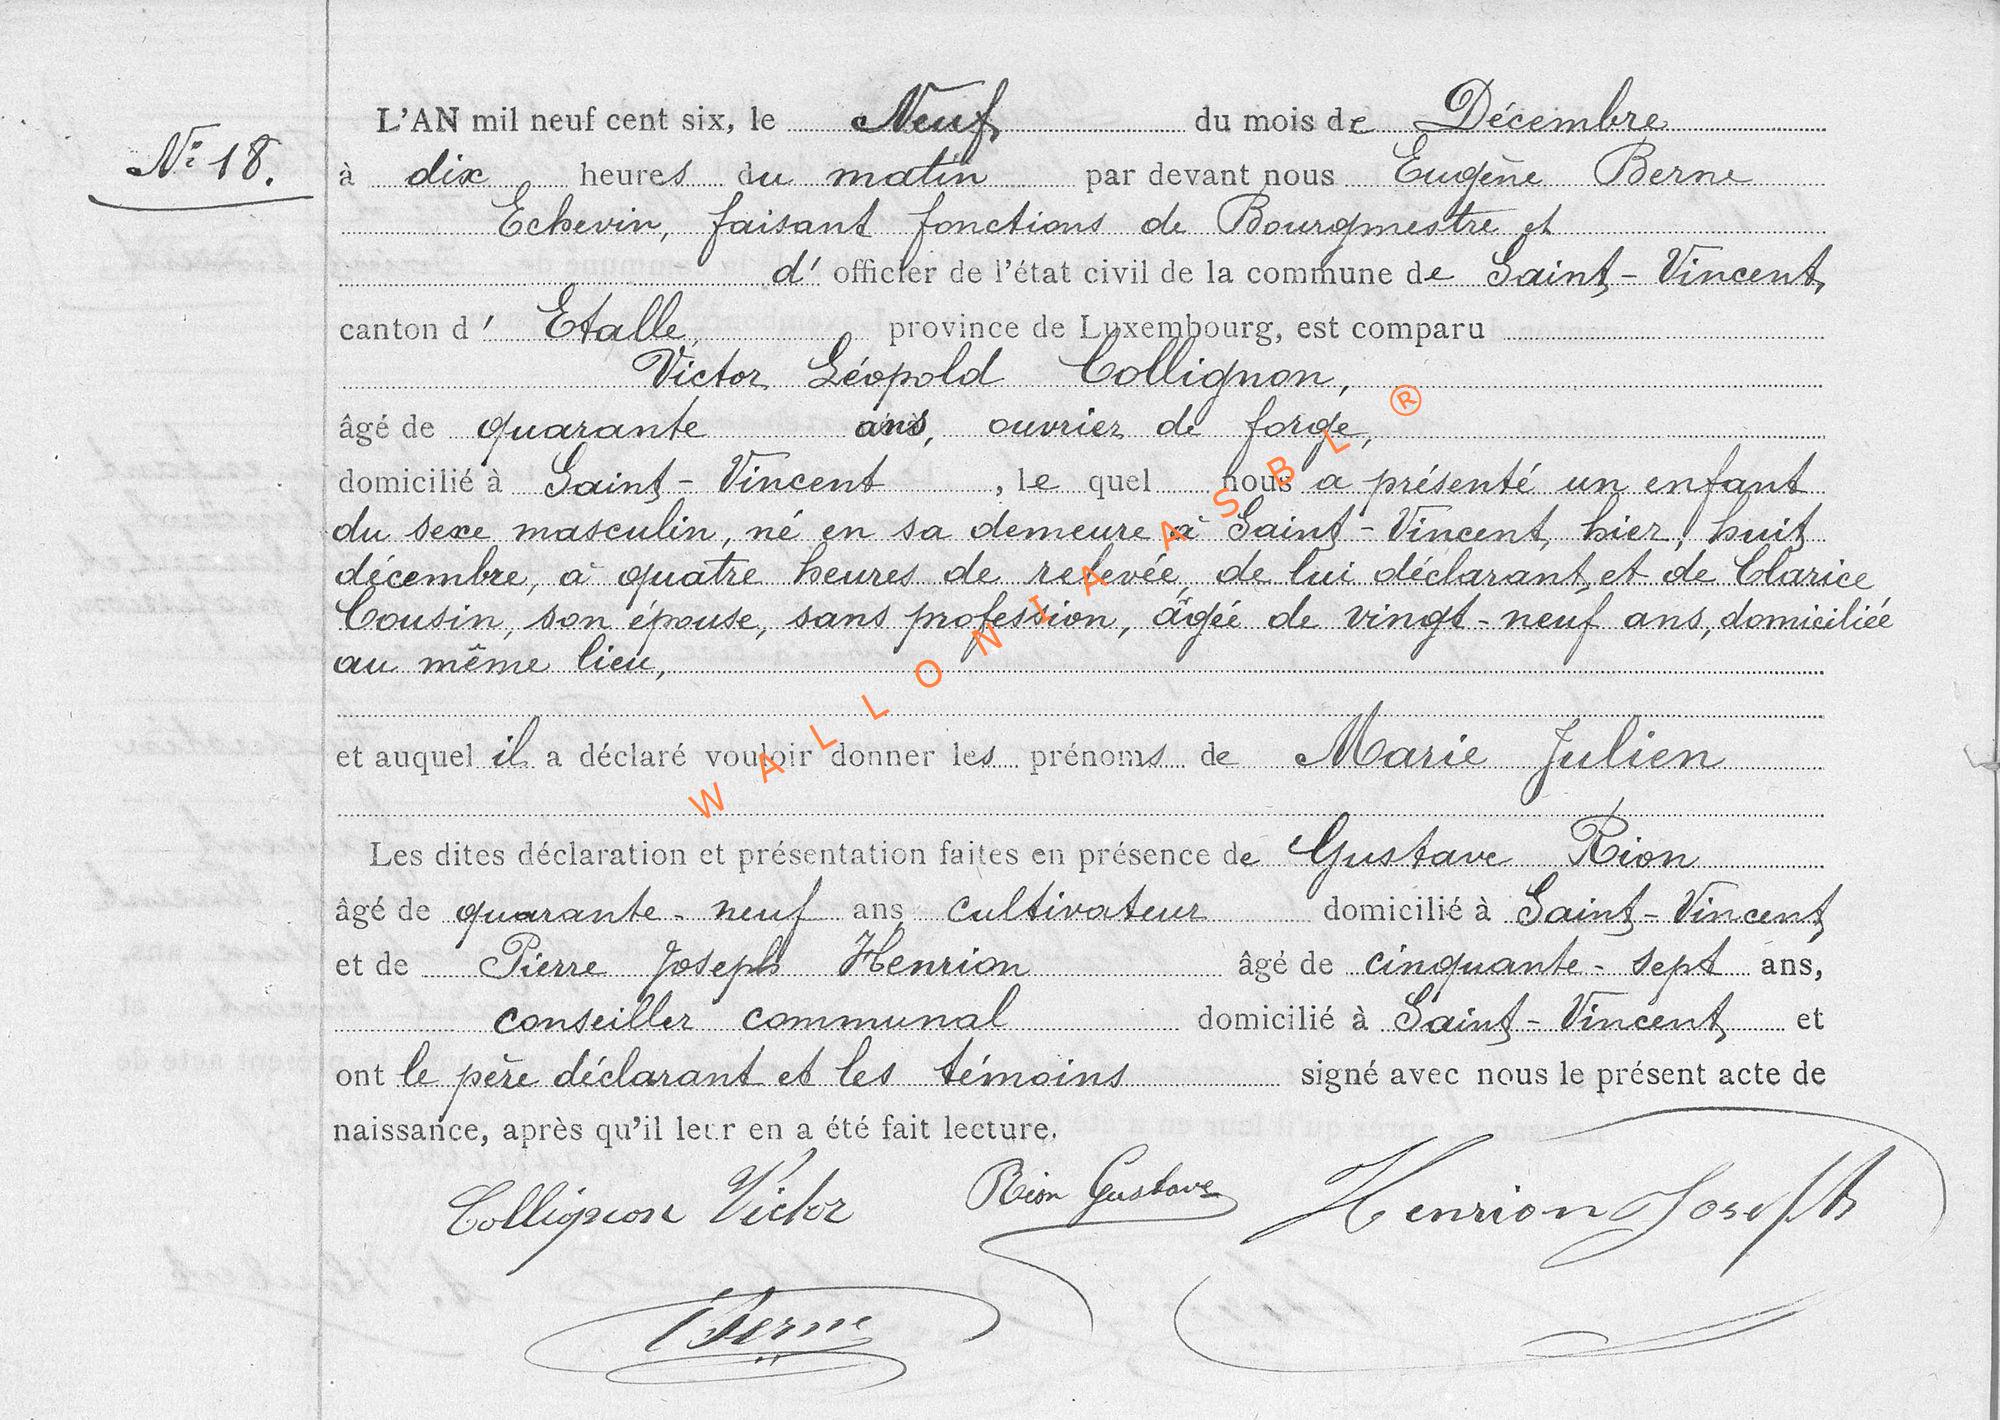 N° 18.
L'AN mil neuf cent six, le Neuf du mois de Décembre
à dix heures du matin par devant nous Eugène Berne
Echevin, faisant fonctions de Bourgmestre et
d' officier de l'état civil de la commune de Saint-Vincent,
canton d' Etalle, province de Luxembourg, est comparu
Victor Léopold Collignon,
âgé de quarante ans, ouvrier de forge,
domicilié à Saint-Vincent, le quel nous a présenté un enfant
du sexe masculin, né en sa demeure à Saint-Vincent, hier, huit
décembre, à quatre heures de relevée, de lui déclarant, et de Clarice
Cousin, son épouse, sans profession, âgée de vingt-neuf ans, domiciliée
au même lieu,
et auquel il a déclaré vouloir donner les prénoms de Marie Julien
Les dites déclaration et présentation faites en présence de Gustave Rion
âgé de quarante-neuf ans cultivateur domicilié à Saint-Vincent
et de Pierre Joseph Henrion âgé de cinquante-sept ans,
conseiller communal domicilié à Saint-Vincent et
ont le père déclarant et les témoins signé avec nous le présent acte de
naissance, après qu'il leur en a été fait lecture.
Collignon Victor Rion Gustave Henrion Joseph
Berne
WALLONIA ASBL ®